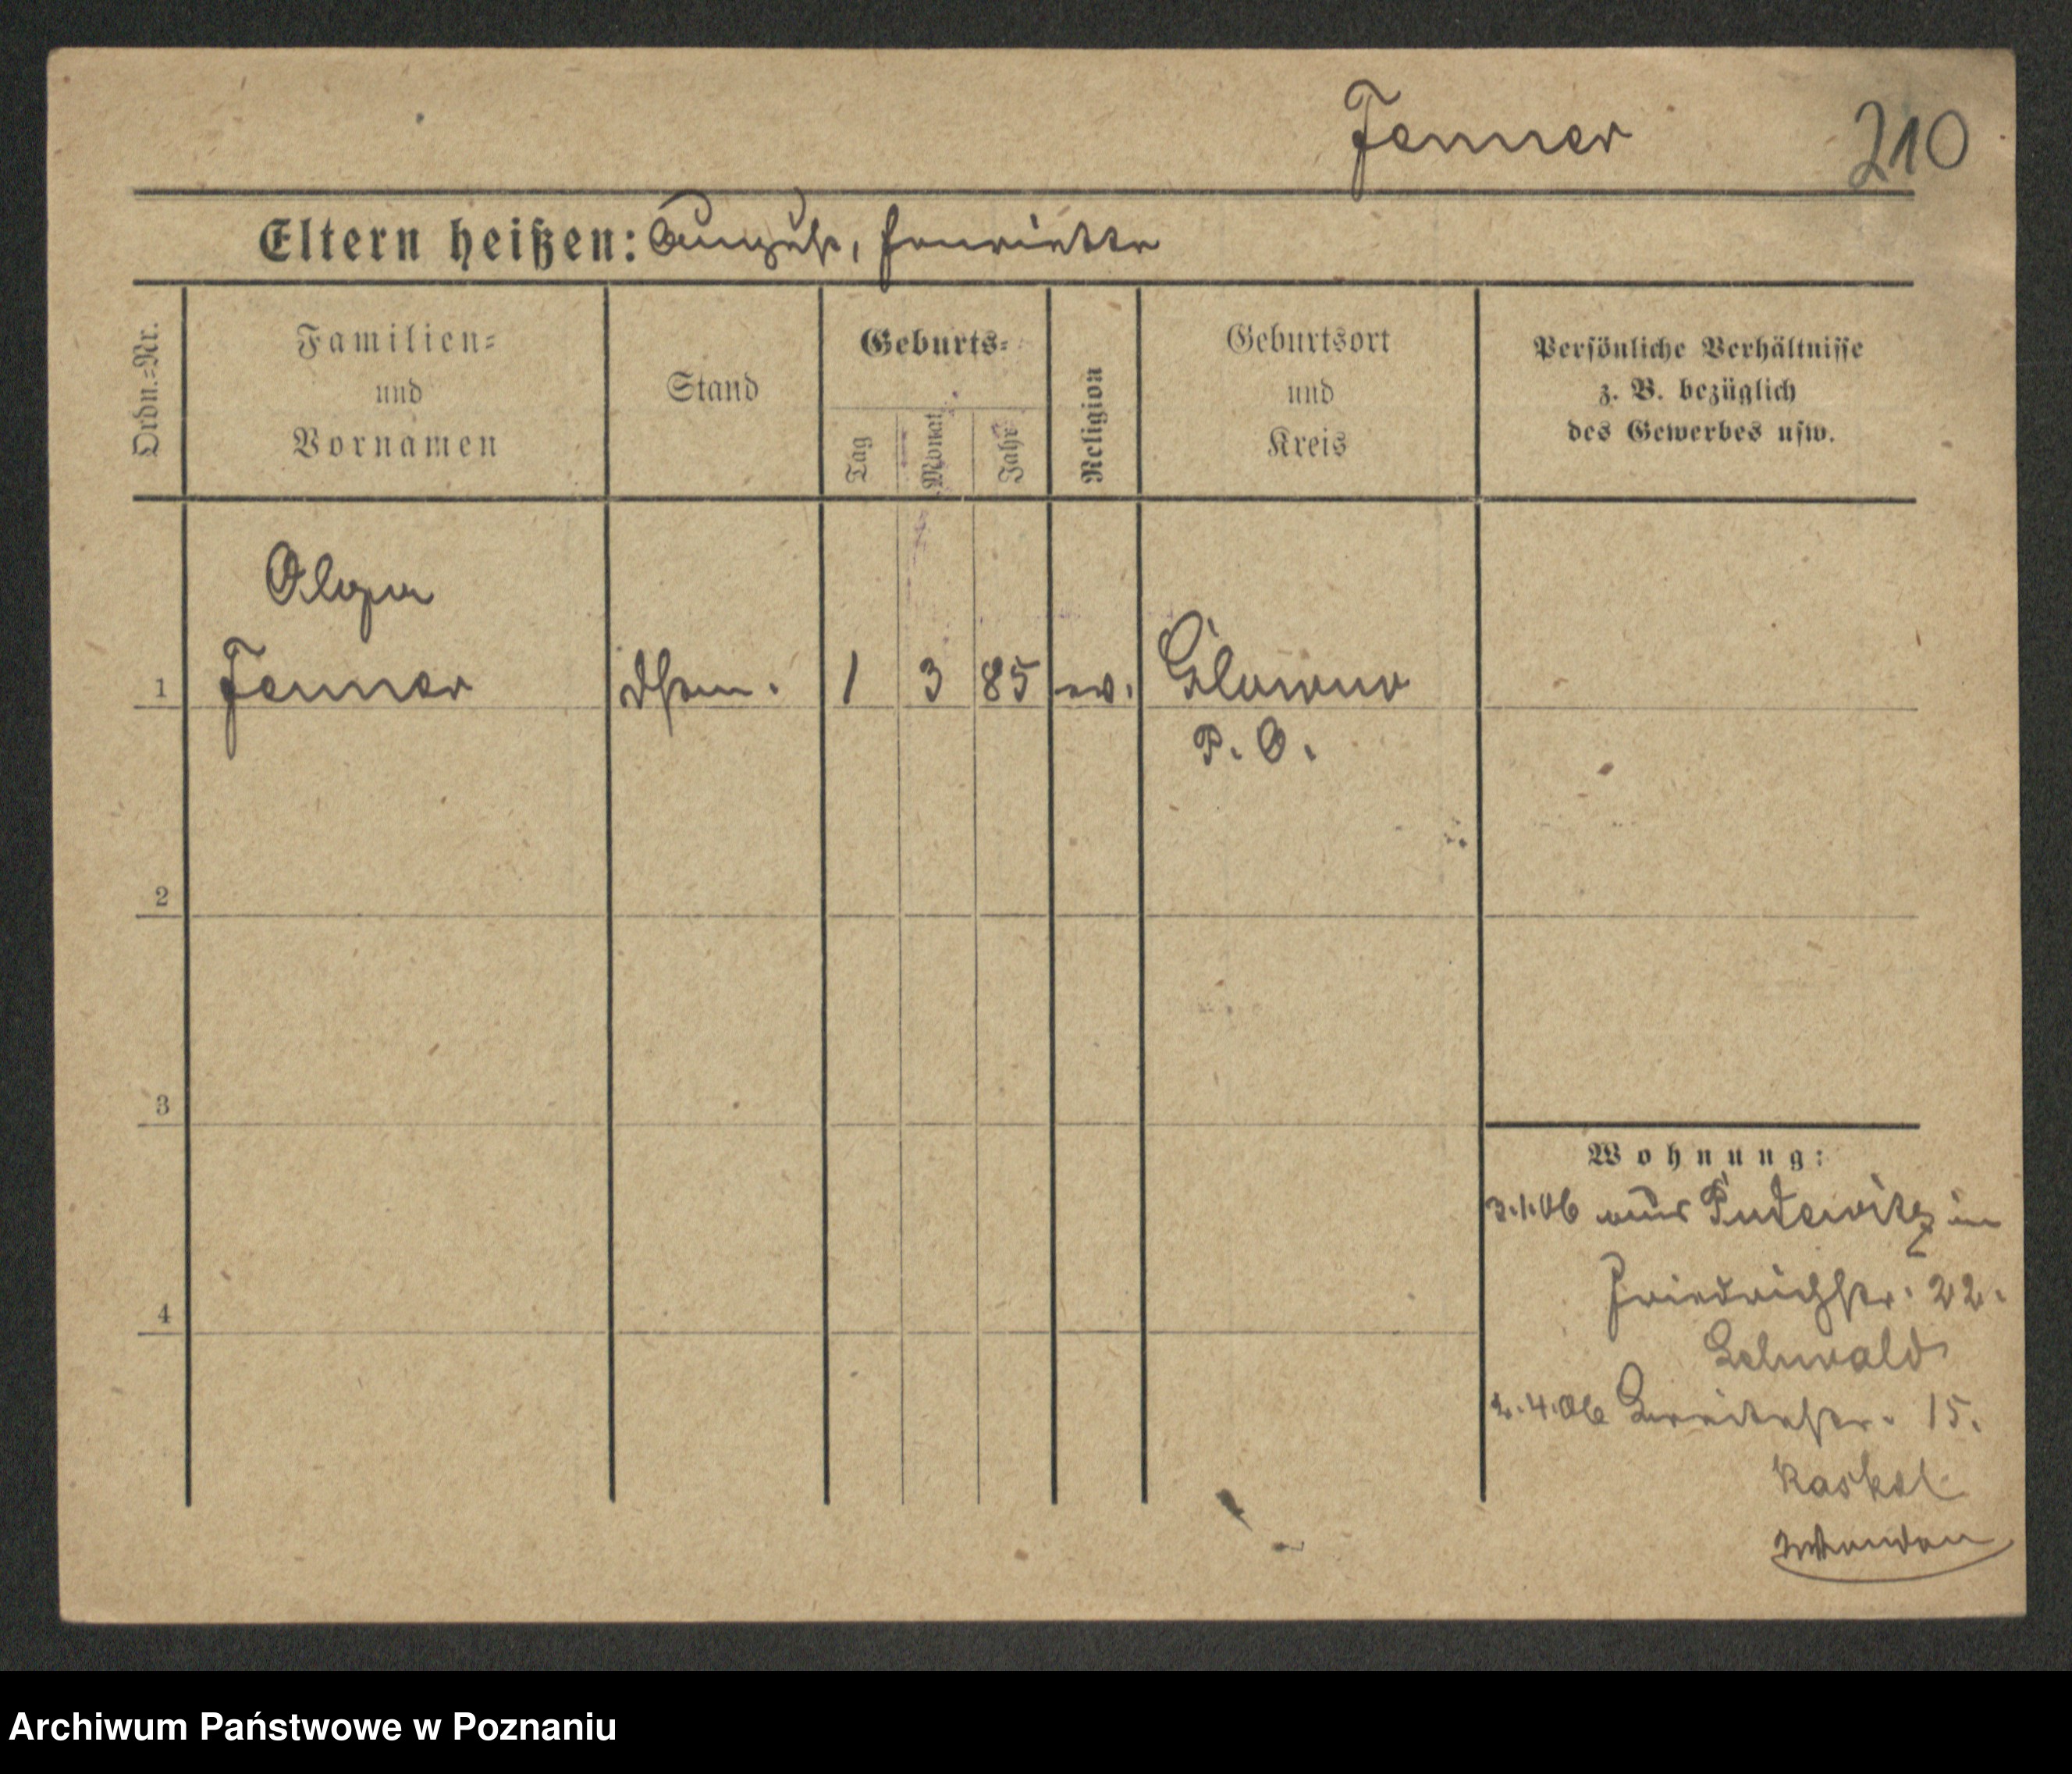 Jenner 210
Eltern heißen: August, Henriette
Ordn.=Nr.
Familien=
und
Vornamen
Stand
Geburts=
Tag
Monat
Jahr
Religion
Geburtsort
und
Kreis
Persönliche Verhältnisse
z. B. bezüglich
des Gewerbes usw.
Olga
1 Jenner 1 3 85 ev. Glowno
P. O.
2
3
4
Wohnung:
3.1.06 aus Pudewitz in
Friedrichstr. 22.
Lehwald
2.4.06 Breitestr. 15.
Kaskel
Archiwum Państwowe w Poznaniu